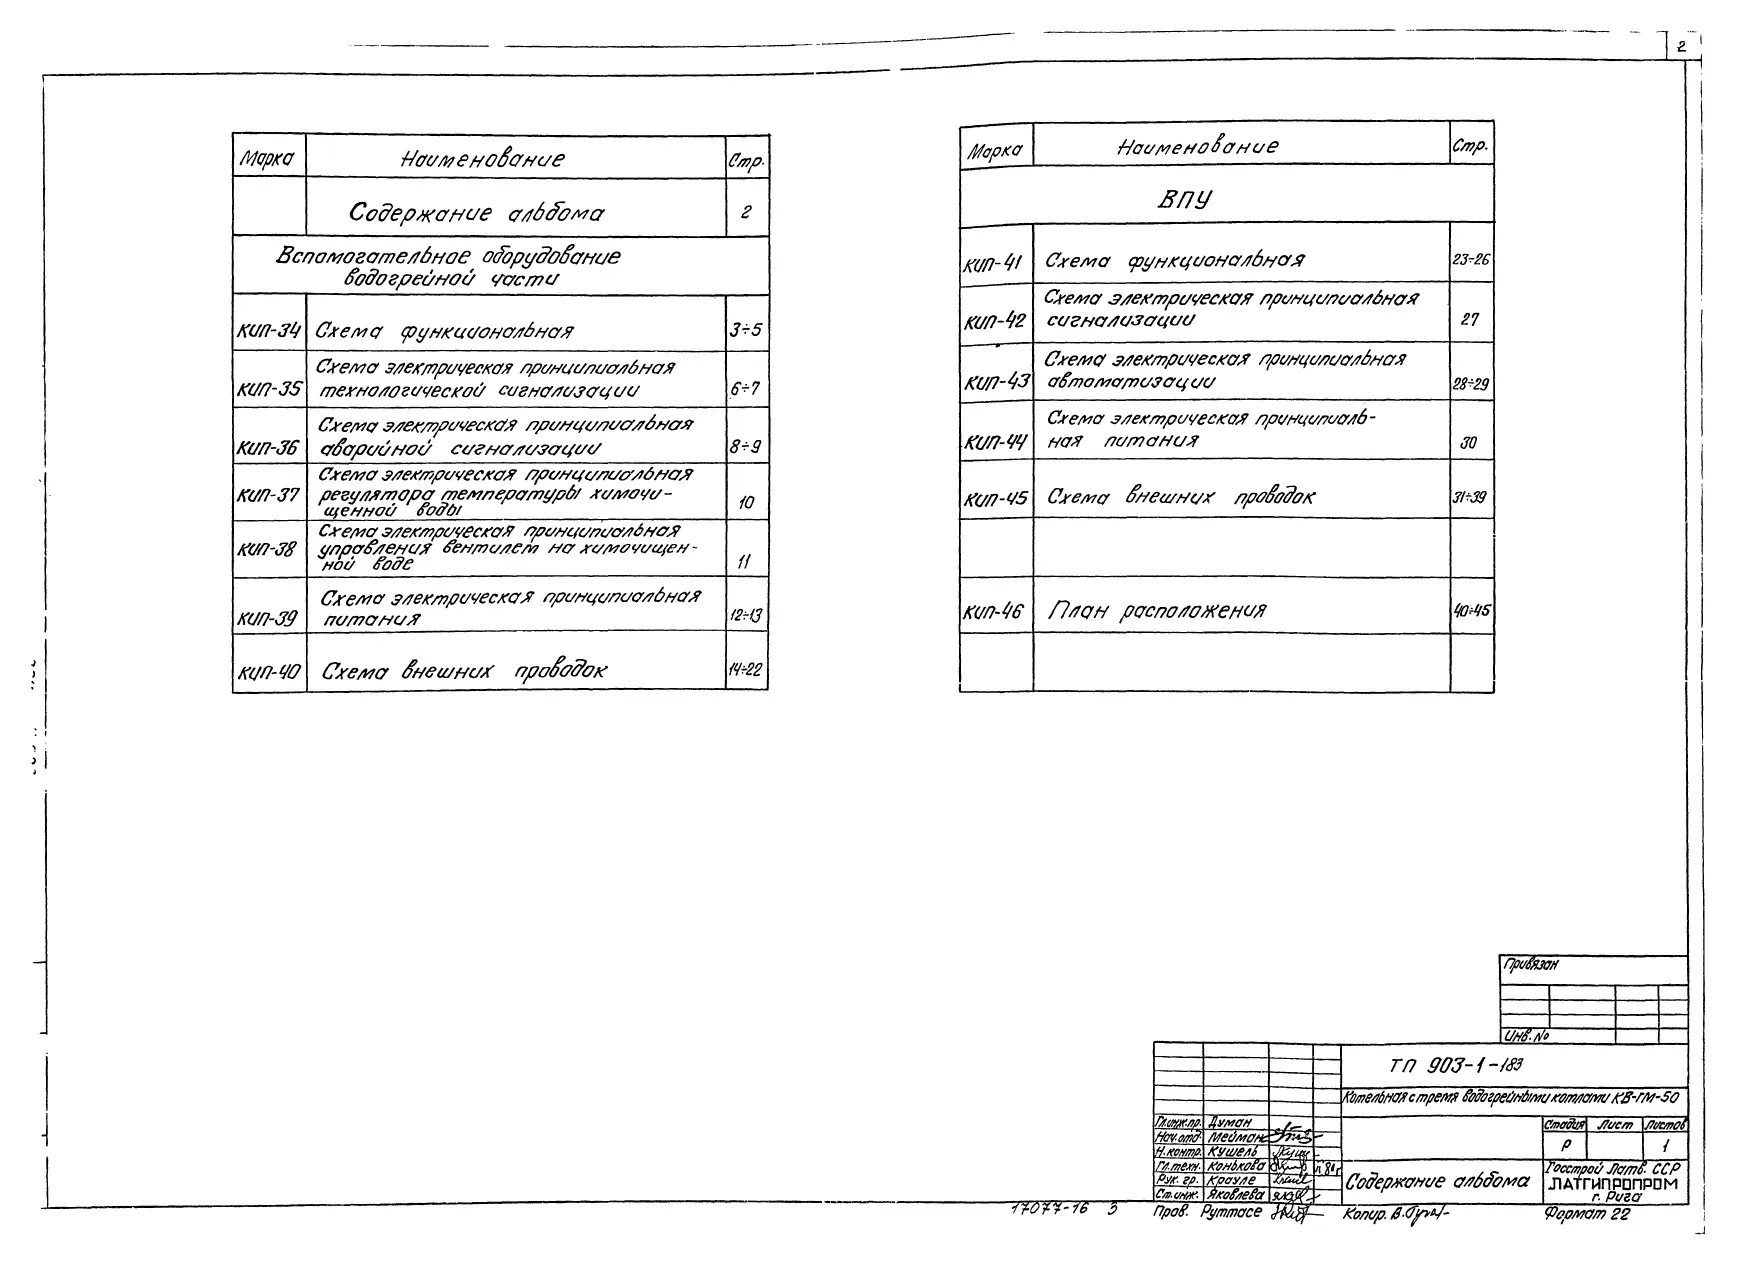 2
Марка Наименование Стр.
Содержание альбома 2
Вспомогательное оборудование
водогрейной части
КИП-34 Схема функциональная 3÷5
Схема электрическая принципиальная
КИП-35 технологической сигнализации 6÷7
Схема электрическая принципиальная
КИП-36 аварийной сигнализации 8÷9
Схема электрическая принципиальная
КИП-37 регулятора температуры химочи-
щенной воды 10
Схема электрическая принципиальная
КИП-38 управления вентилем на химочищен-
ной воде 11
Схема электрическая принципиальная
КИП-39 питания 12÷13
КИП-40 Схема внешних проводок 14÷22
Марка Наименование Стр.
ВПУ
КИП-41 Схема функциональная 23÷26
Схема электрическая принципиальная
КИП-42 сигнализации 27
Схема электрическая принципиальная
КИП-43 автоматизации 28÷29
Схема электрическая принципиаль-
КИП-44 ная питания 30
КИП-45 Схема внешних проводок 31÷39
КИП-46 План расположения 40÷45
Привязан
Инв. №
ТП 903-1-183
Котельная с тремя водогрейными котлами КВ-ГМ-50
Гл.инж.пр. Думан
Нач.отд. Мейман
Н.контр. Кушель
Гл.техн. Конькова
Рук. гр. Крауле
Ст.инж. Яковлева
Стадия Лист Листов
Р 1
Содержание альбома
Госстрой Латв. ССР
ЛАТГИПРОПРОМ
г. Рига
17077-16 3 Пров. Руттасе Копир. Формат 22